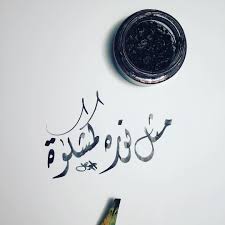 مثل نوره كمشكوة